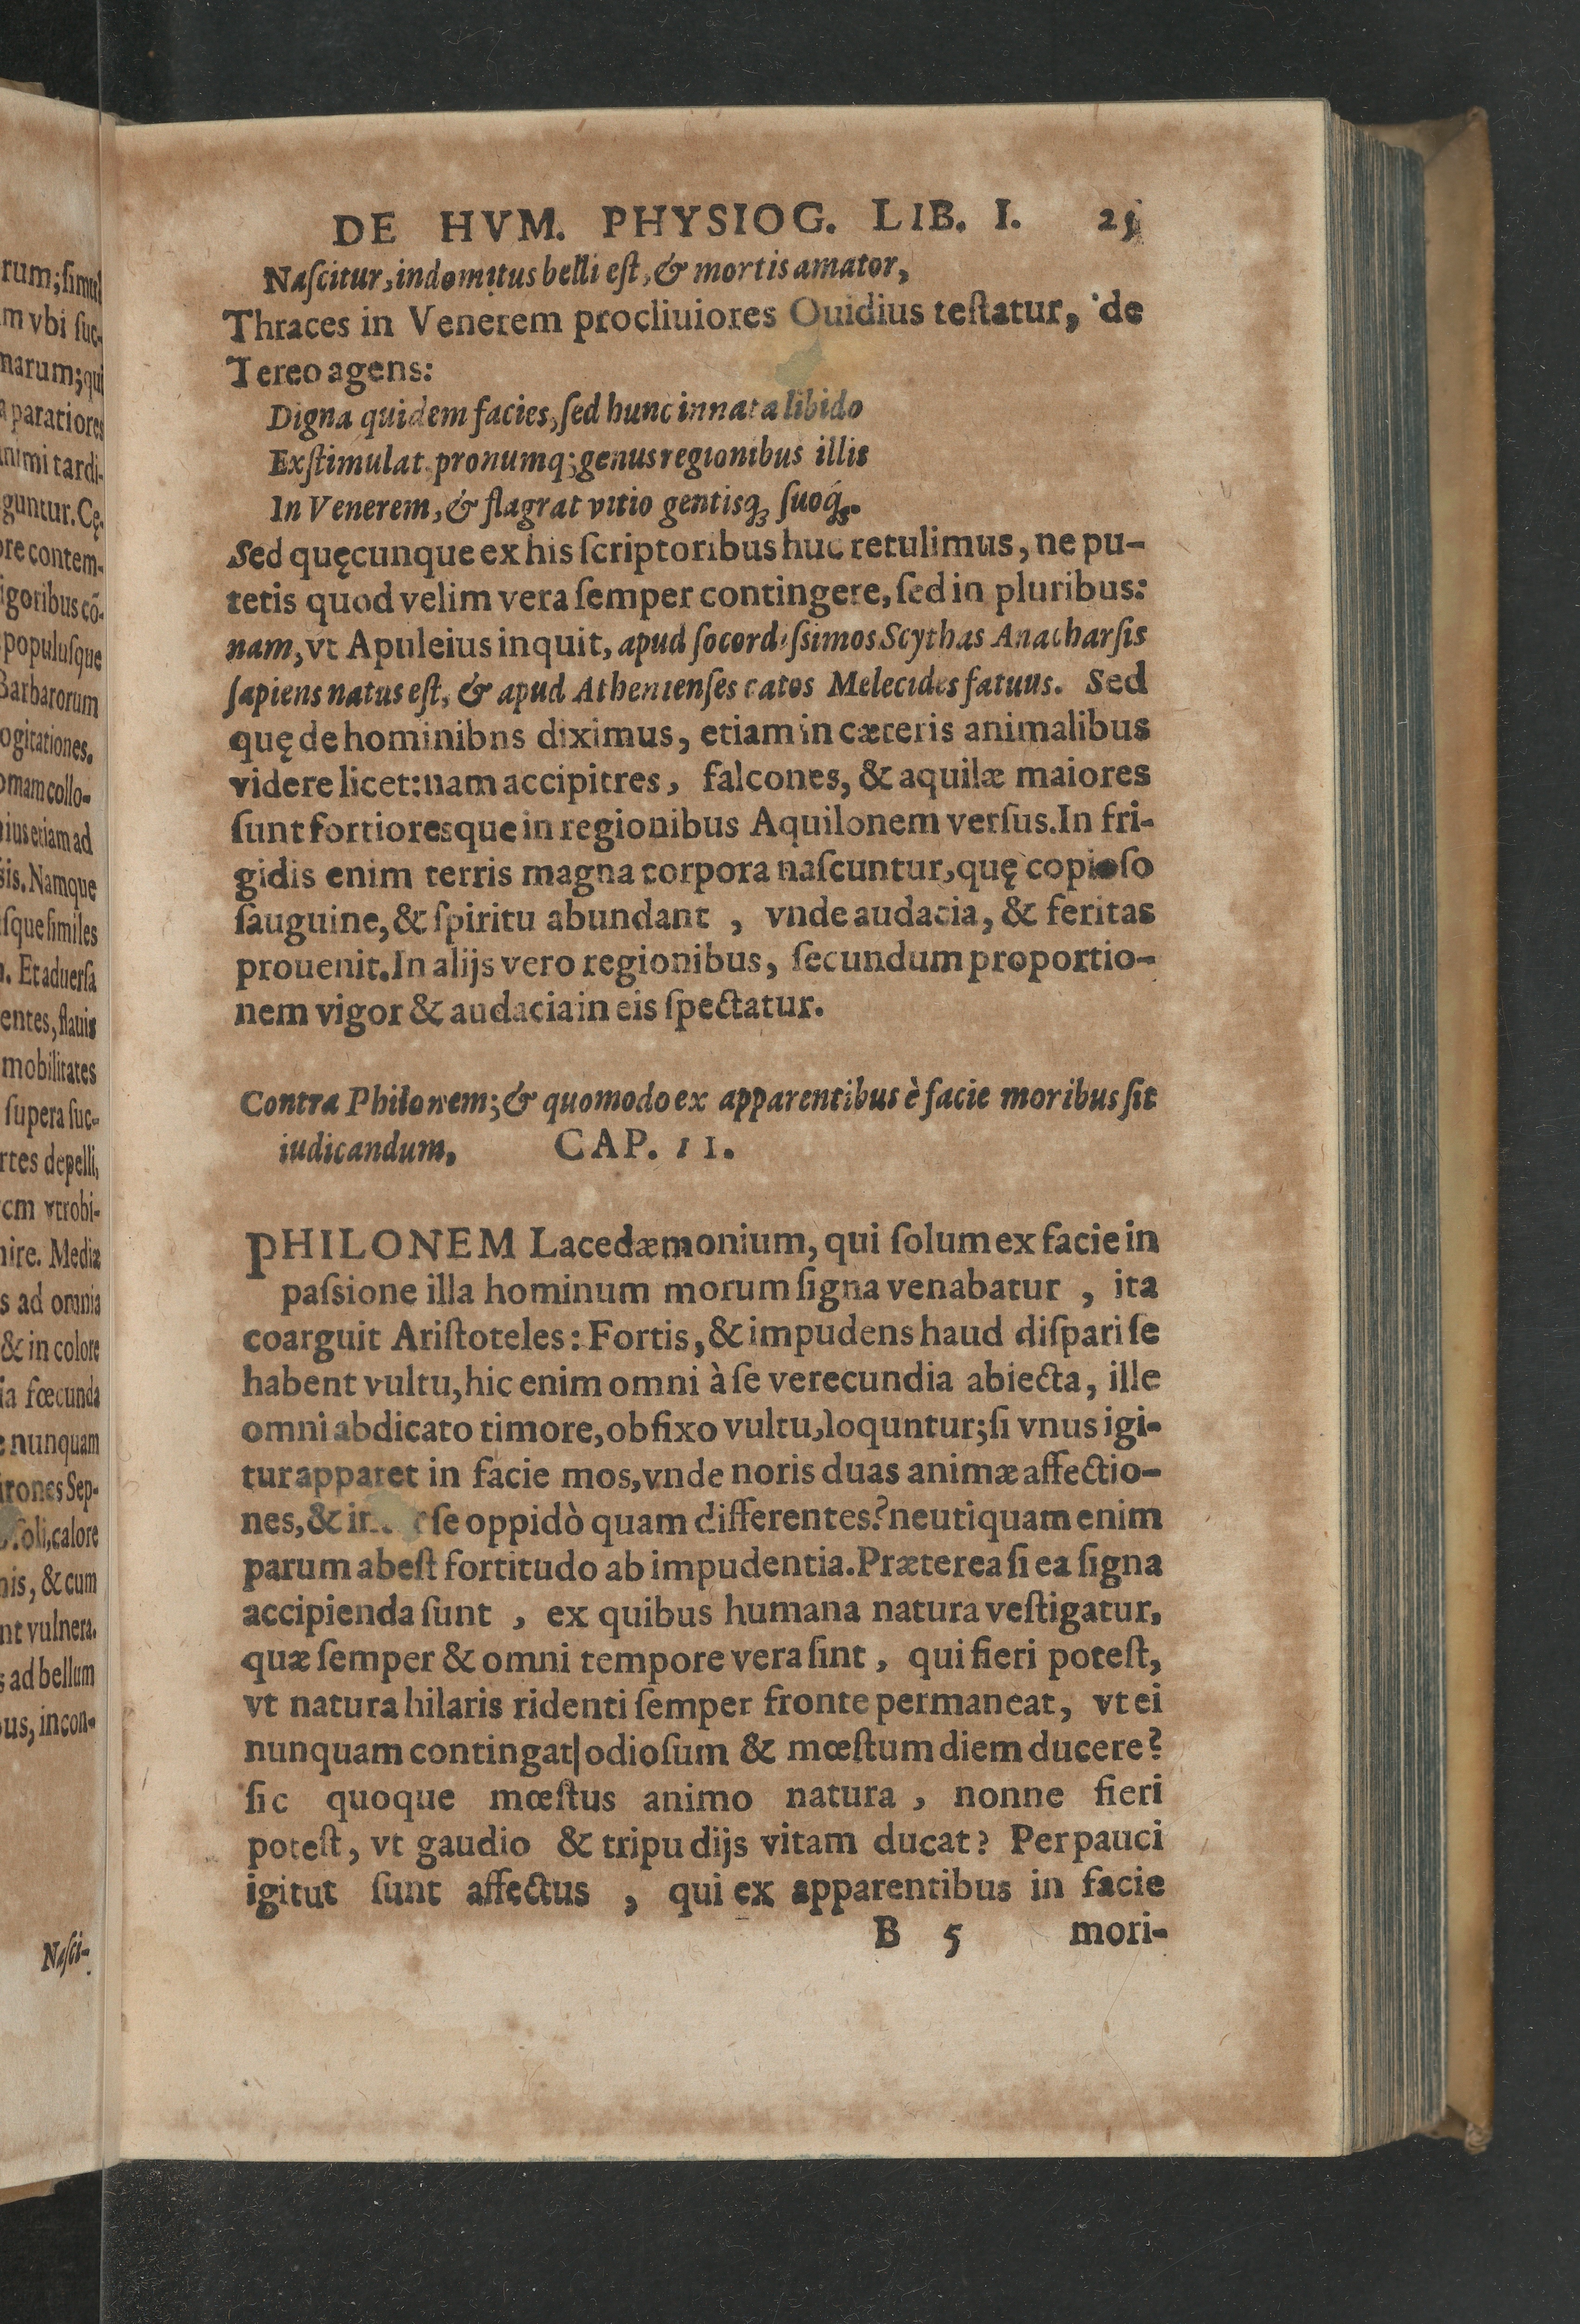 DE HVM. PHYSIOG. LIB. I. 25
Naſcitur, indomitus belli eſt, & mortis amator,
Thraces in Venerem procliuiores Ouidius teſtatur, de
Tereo agens:
Digna quidem facies, ſed hunc innata libido
Exſtimulat, pronumq; genus regionibus illis
In Venerem, & flagrat vitio gentisq; ſuoq;.
Sed quęcunque ex his ſcriptoribus huc retulimus, ne pu-
tetis quod velim vera ſemper contingere, ſed in pluribus:
nam, vt Apuleius inquit, apud ſocordiſſimos Scythas Anacharſis
ſapiens natus eſt, & apud Athenienſes catos Melecides fatuus. Sed
quę de hominibns diximus, etiam in cæteris animalibus
videre licet: nam accipitres, falcones, & aquilæ maiores
ſunt fortioresque in regionibus Aquilonem verſus. In fri-
gidis enim terris magna corpora naſcuntur, quę copioſo
ſauguine, & ſpiritu abundant , vnde audacia, & feritas
prouenit. In alijs vero regionibus, ſecundum proportio-
nem vigor & audacia in eis ſpectatur.
Contra Philonem; & quomodo ex apparentibus è facie moribus ſit
iudicandum, CAP. II.
PHILONEM Lacedæmonium, qui ſolum ex facie in
paſsione illa hominum morum ſigna venabatur , ita
coarguit Ariſtoteles: Fortis, & impudens haud diſpari ſe
habent vultu, hic enim omni à ſe verecundia abiecta, ille
omni abdicato timore, obfixo vultu, loquntur; ſi vnus igi-
tur apparet in facie mos, vnde noris duas animæ affectio-
nes, & ſe oppidò quam differentes? neutiquam enim
parum abeſt fortitudo ab impudentia. Præterea ſi ea ſigna
accipienda ſunt , ex quibus humana natura veſtigatur,
quæ ſemper & omni tempore vera ſint, qui fieri poteſt,
vt natura hilaris ridenti ſemper fronte permaneat, vt ei
nunquam contingat| odioſum & mœſtum diem ducere?
ſic quoque mœſtus animo natura , nonne fieri
poteſt, vt gaudio & tripudijs vitam ducat? Perpauci
igitut ſunt affectus , qui ex apparentibus in facie
B 5 mori-
rum; ſimul
m vbi ſuc-
narum; qui
aparatiores
nimi tardi-
guntur. Cę-
ore contem-
igoribus cō-
populuſque
Barbarorum
ogitationes.
omam collo-
ius etiam ad
ſis. Namque
ſque ſimiles
. Et aduerſa
entes, flauis
mobilitates
ſupera ſuc-
rtes depelli,
cm vtrobi-
nire. Mediæ
s ad omnia
& in colore
ia fœcunda
e nunquam
trones Sep-
ſoli, calore
nis, & cum
nt vulnera.
s ad bellum
bus, incon-
Naſci-